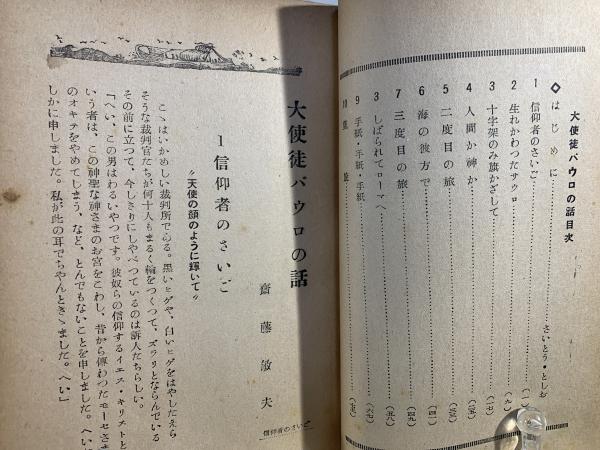 大使徒パウロの話目次
◇はじめに……………………さいとう・としお
1 信仰者のさいご……………………(一)
2 生れかわつたサウロ……………………(九)
3 十字架のみ旗かざして……………………(一七)
4 人間か神か……………………(二五)
5 二度目の旅……………………(三三)
6 海の彼方で……………………(四一)
7 三度目の旅……………………(四九)
3 しばられてローマへ……………………(五八)
9 手紙・手紙・手紙……………………(六七)
10
大使徒パウロの話
齋藤敏夫
1 信仰者のさいご
〝天使の顔のように輝いて〟
こゝはいかめしい裁判所である。黒いヒゲや、白いヒゲをはやしたえら
そうな裁判官たちが何十人もまるく輪をつくつて、ズラリとならんでいる
その前に立つて、今しきりにしやべつているのは訴人たちらしい。
「へい、この男はわるいやつです。彼奴らの信仰するイエス・キリストと
いう者は、この神聖な神さまのお宮をこわし、昔から傳わつたモーセさま
のオキテをやめてしまう、など、とんでもないことを申しました。へい
しかに申しました。私が此の耳でちやんときゝました。へい」
信仰者のさいご